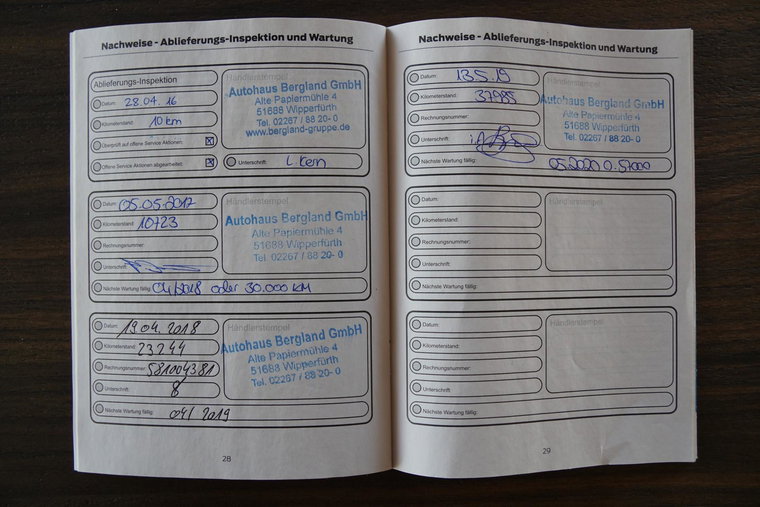 Nachweise - Ablieferungs-Inspektion und Wartung
Ablieferungs-Inspektion
Händlerstempel
Datum: 28.04.16
Kilometerstand: 10 km
Überprüft auf offene Service Aktionen:
Offene Service Aktionen abgearbeitet:
Autohaus Bergland GmbH
Alte Papiermühle 4
51688 Wipperfürth
Tel. 02267 / 88 20- 0
www.bergland-gruppe.de
Unterschrift:
Datum: 05.05.2017
Kilometerstand: 10723
Rechnungsnummer:
Unterschrift:
Händlerstempel
Autohaus Bergland GmbH
Alte Papiermühle 4
51688 Wipperfürth
Tel. 02267 / 88 20- 0
Nächste Wartung fällig: 04/2018 oder 30.000 KM
Datum: 19.04.2018
Kilometerstand: 23244
Rechnungsnummer: 581004381
Unterschrift:
Händlerstempel
Autohaus Bergland GmbH
Alte Papiermühle 4
51688 Wipperfürth
Tel. 02267 / 88 20- 0
Nächste Wartung fällig: 04/2019
28
Nachweise - Ablieferungs-Inspektion und Wartung
Datum: 13.5.19
Kilometerstand: 37985
Rechnungsnummer:
Unterschrift:
Händlerstempel
Autohaus Bergland GmbH
Alte Papiermühle 4
51688 Wipperfürth
Tel. 02267 / 88 20- 0
Nächste Wartung fällig: 05.2020 o. 57000
Datum:
Kilometerstand:
Rechnungsnummer:
Unterschrift:
Händlerstempel
Nächste Wartung fällig:
Datum:
Kilometerstand:
Rechnungsnummer:
Unterschrift:
Händlerstempel
Nächste Wartung fällig:
29